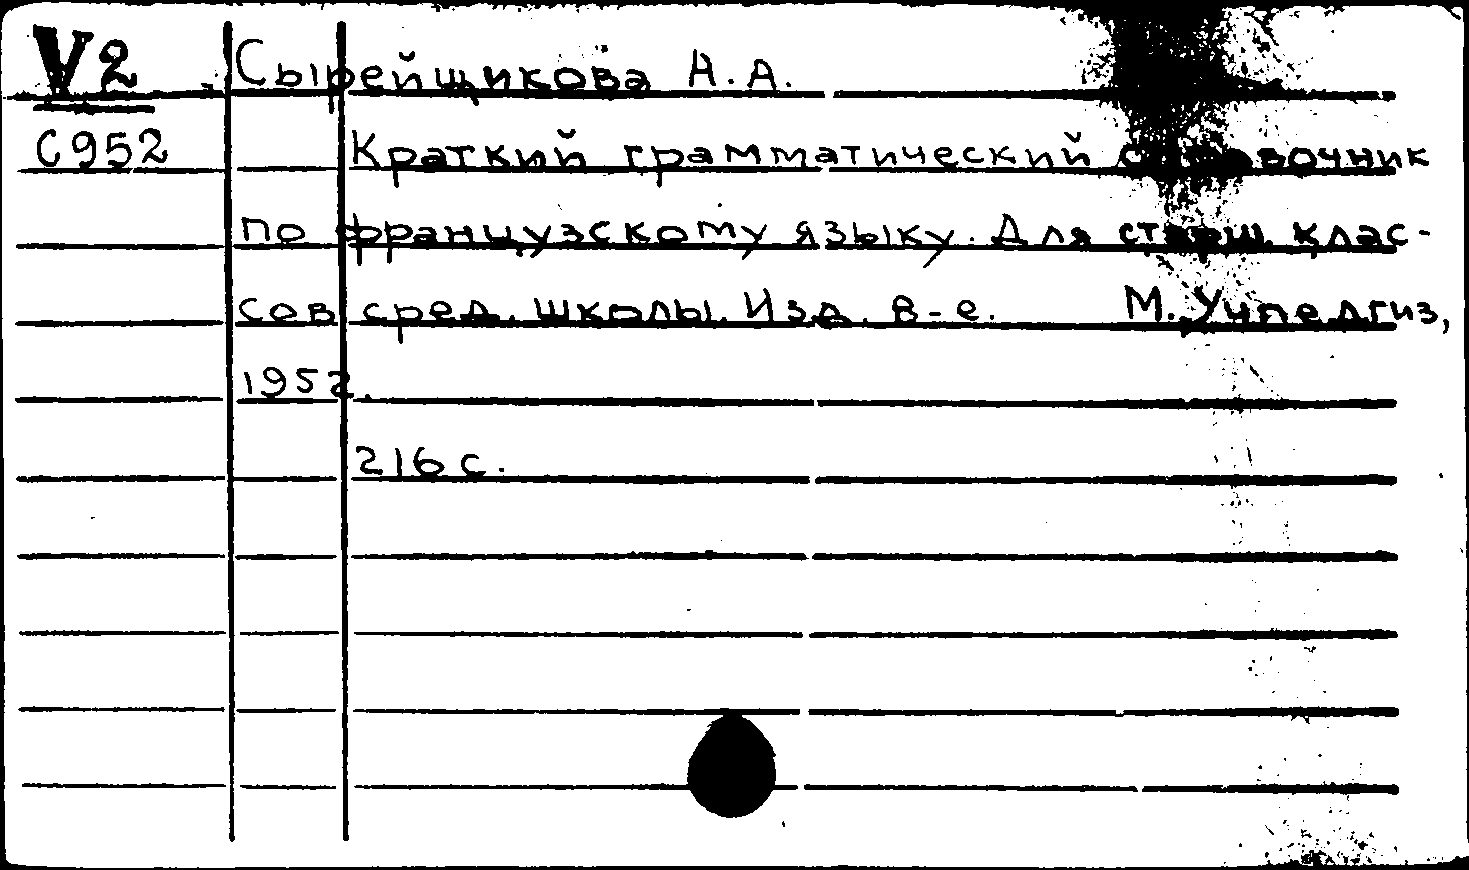 V2 Сырейщикова А.А.
С952 Краткий грамматический справочник
по французскому языку. Для старш. клас-
сов сред. школы. Изд. 8-е. М. Учпедгиз,
1952.
216 с.